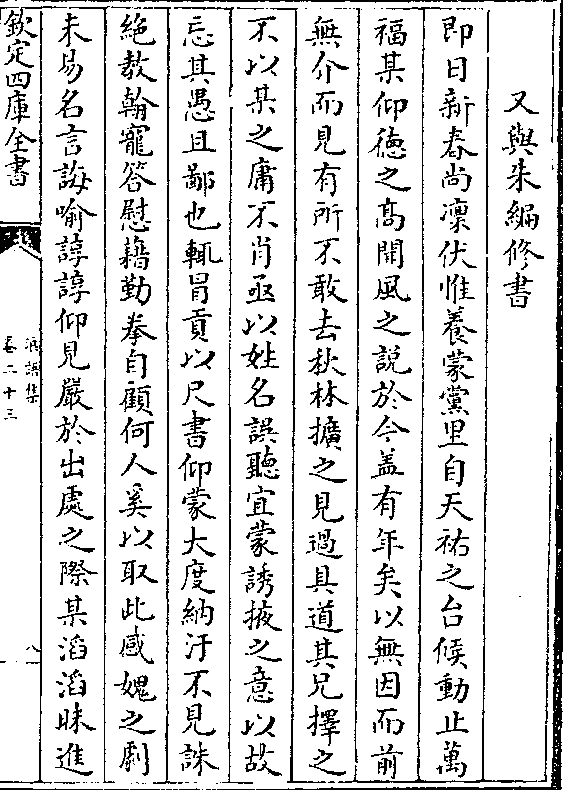 又與朱編修書
即日新春尚凛伏惟養蒙黨里自天祐之台候動止萬
福某仰徳之髙聞風之説於今盖有年矣以無因而前
無介而見有所不敢去秋林擴之見過具道其兄擇之
不以某之庸不肖亟以姓名誤聽宜蒙誘掖之意以故
忘其愚且鄙也輒冒貢以尺書仰蒙大度納汙不見誅
絶教翰寵答慰藉勤拳自顧何人奚以取此感媿之劇
未易名言誨喻諄諄仰見嚴於出處之際某滔滔昧進
欽定四庫全書
浪語集
卷二十三
八